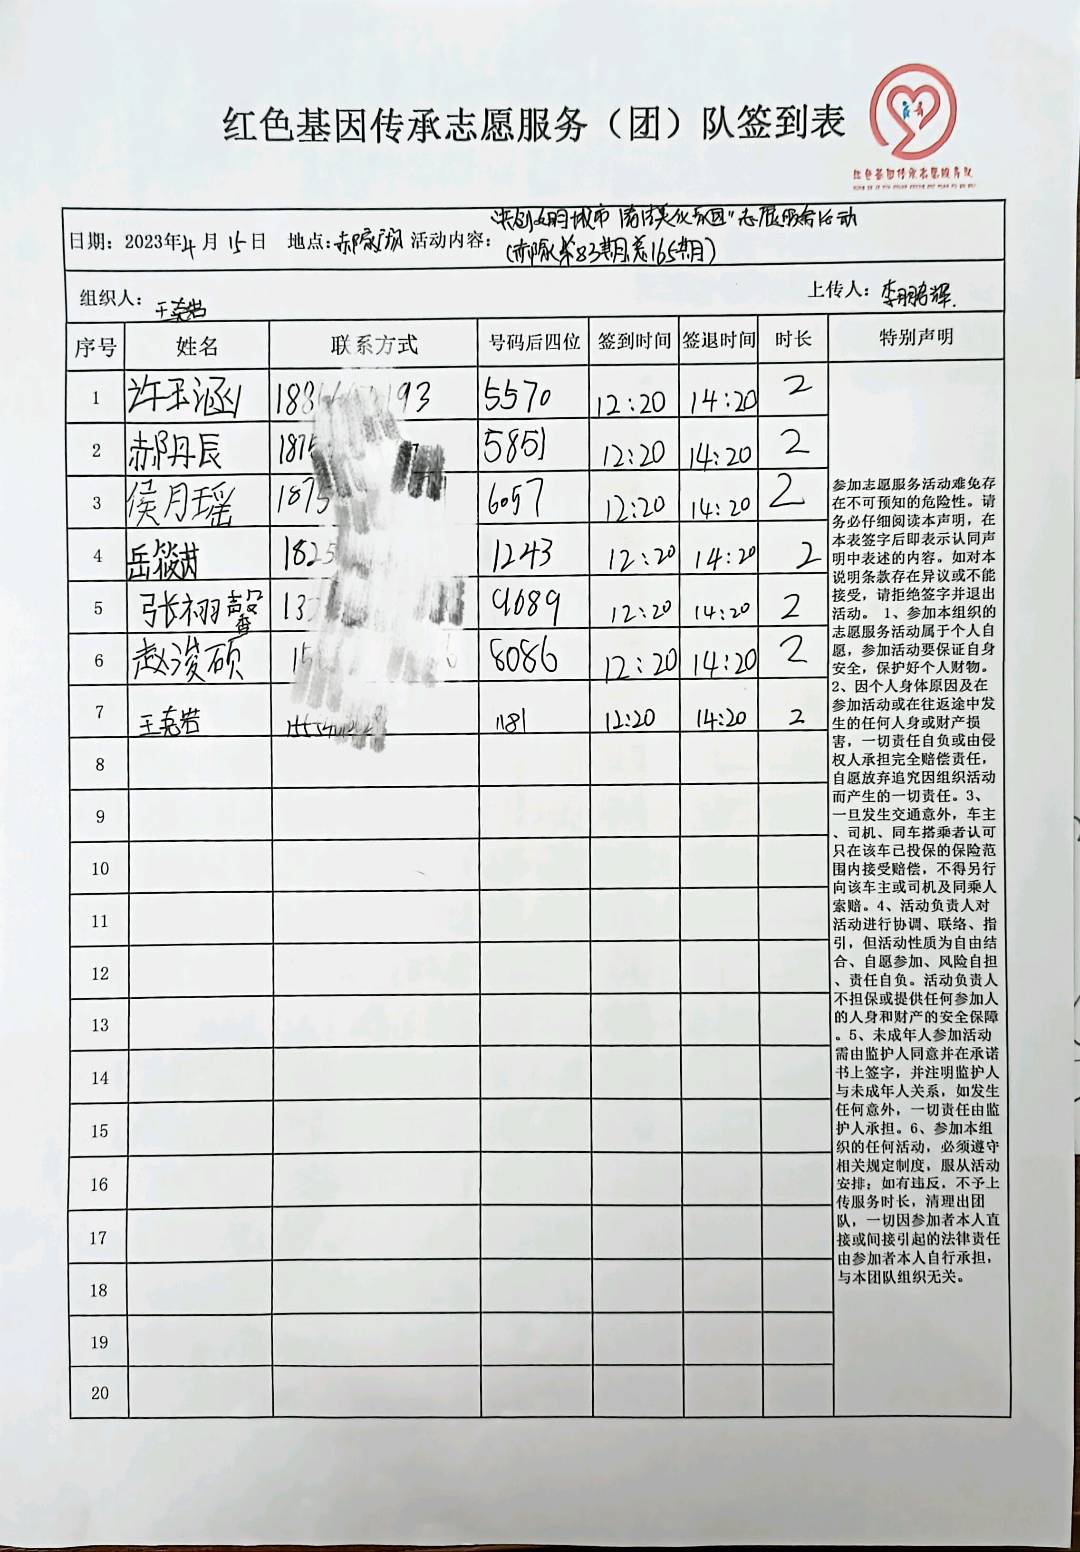 红色基因传承志愿服务（团）队签到表
红色基因传承志愿服务队
"共创文明城市 清洁美化家园"志愿服务活动
日期：2023年4月15日 地点：活动内容：(郝家第83期总165期)
组织人：王
上传人：李鹏辉.
序号 姓名 联系方式 号码后四位 签到时间 签退时间 时长 特别声明
1 许玉涵 5570 12:20 14:20 2
2 郝丹辰 5851 12:20 14:20 2
3 侯月瑶 6057 12:20 14:20 2
4 岳筱 1243 12:20 14:20 2
5 张栩馨 9689 12:20 14:20 2
6 赵浚硕 8086 12:20 14:20 2
7 王 1181 12:20 14:20 2
8
9
10
11
12
13
14
15
16
17
18
19
20
参加志愿服务活动难免存
在不可预知的危险性。请
务必仔细阅读本声明，在
本表签字后即表示认同声
明中表述的内容。如对本
说明条款存在异议或不能
接受，请拒绝签字并退出
活动。 1、参加本组织的
志愿服务活动属于个人自
愿，参加活动要保证自身
安全，保护好个人财物。
2、因个人身体原因及在
参加活动或在往返途中发
生的任何人身或财产损
害，一切责任自负或由侵
权人承担完全赔偿责任，
自愿放弃追究因组织活动
而产生的一切责任。3、
一旦发生交通意外，车主
、司机、同车搭乘者认可
只在该车已投保的保险范
围内接受赔偿，不得另行
向该车主或司机及同乘人
索赔。4、活动负责人对
活动进行协调、联络、指
引，但活动性质为自由结
合、自愿参加、风险自担
、责任自负。活动负责人
不担保或提供任何参加人
的人身和财产的安全保障
。5、未成年人参加活动
需由监护人同意并在承诺
书上签字，并注明监护人
与未成年人关系，如发生
任何意外，一切责任由监
护人承担。6、参加本组
织的任何活动，必须遵守
相关规定制度，服从活动
安排；如有违反，不予上
传服务时长，清理出团
队，一切因参加者本人直
接或间接引起的法律责任
由参加者本人自行承担，
与本团队组织无关。